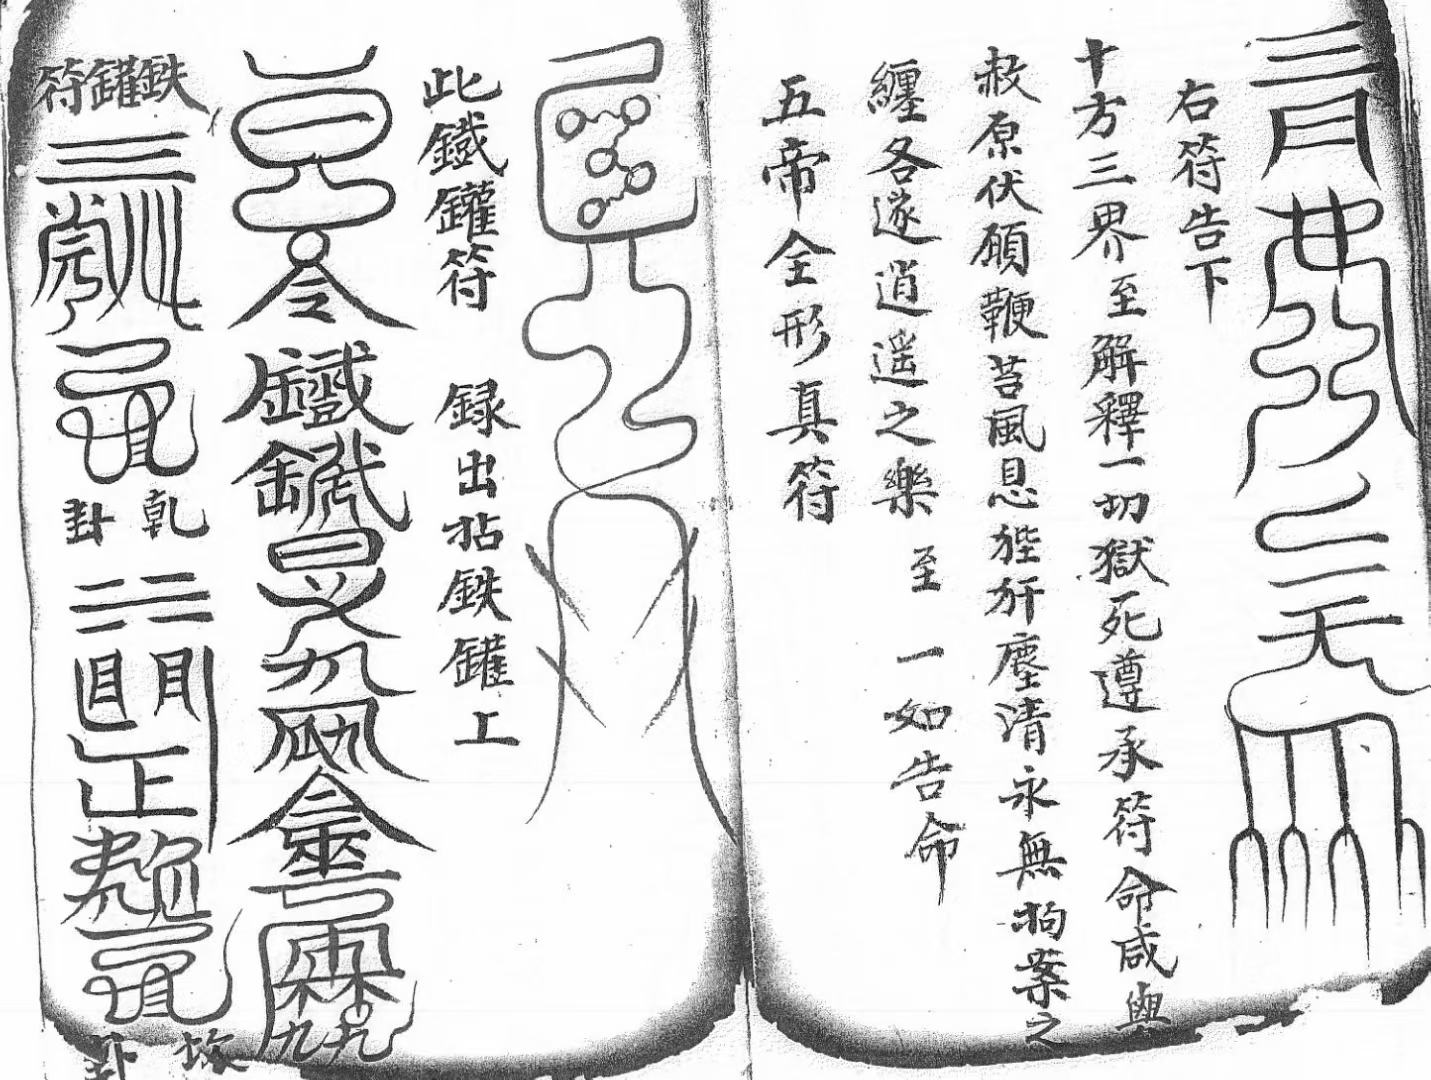 右符告下
十方三界至解釋一切獄死遵承符命咸與
赦原伏願鞭苔風息狴犴塵清永無拘繫之
纏各遂逍遥之樂 至 一如告命
五帝全形真符
此鐵鑵符 録出拈鉄鑵上
鉄鑵符
乾卦
坎卦